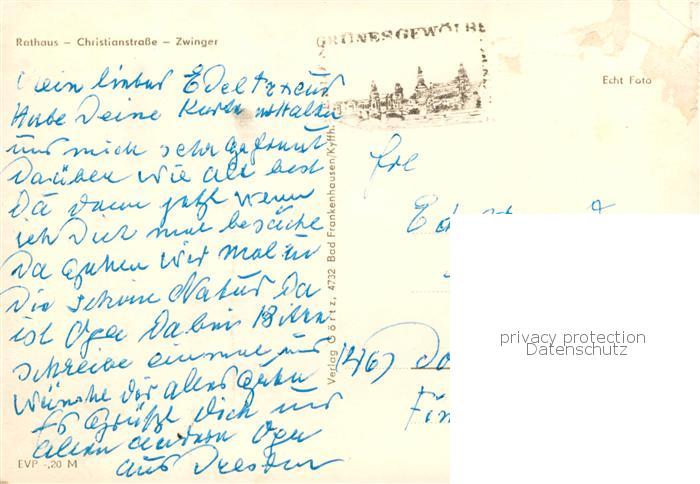 Rathaus – Christianstraße – Zwinger
Mein lieber Edeltraud
Habe Deine Karte erhalten
und mich sehr gefreut
Darüber wie alt bist
Du dann jetzt wenn
ich Dich mal besuche
Da gehen wir mal in
Die schöne Natur Da
ist Opa Dabei
schreibe einmal und
Wünsche Dir alles Gute
Es Grüßt Dich und
allen andern Opa
aus Dresden
EVP -,20 M
GRÜNES GEWÖLBE
Echt Foto
Verlag Görtz, 4732 Bad Frankenhausen/Kyffh.
privacy protection
Datenschutz